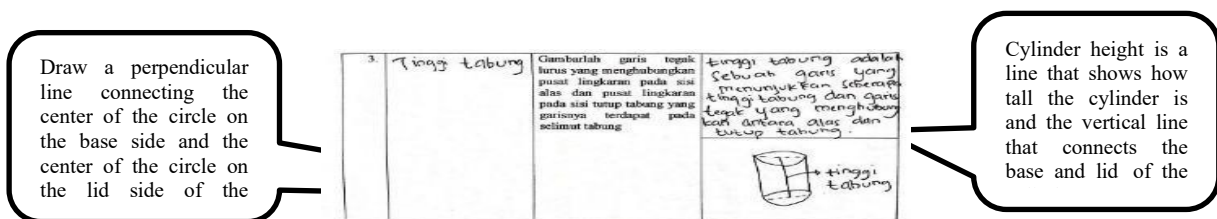 Draw a perpendicular
line connecting the
center of the circle on
the base side and the
center of the circle on
the lid side of the
3.
Tinggi tabung
Gambarlah garis tegak
lurus yang menghubungkan
pusat lingkaran pada sisi
alas dan pusat lingkaran
pada sisi tutup tabung yang
garisnya terdapat pada
selimut tabung
tinggi tabung adalah
sebuah garis yang
menunjukkan seberapa
tinggi tabung dan garis
tegak yang menghubung
kan antara alas dan
tutup tabung.
tinggi
tabung
Cylinder height is a
line that shows how
tall the cylinder is
and the vertical line
that connects the
base and lid of the